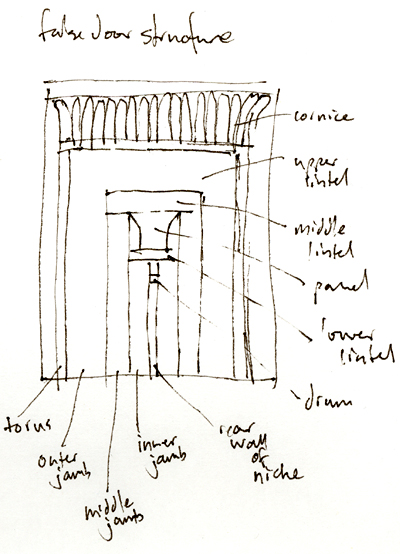 false door structure
cornice
upper
lintel
middle
lintel
panel
lower
lintel
drum
torus
outer
jamb
middle
jamb
inner
jamb
rear
wall
of
niche